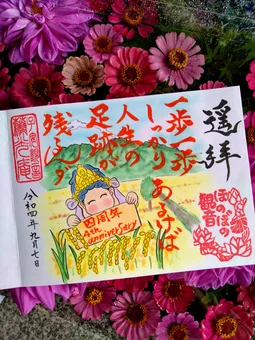 遥拝
一歩一歩
あるけば
しっかり
人生の
足跡が
残るんだ
ほのぼの
観音
四周年
4th anniversary
令和四年九月七日